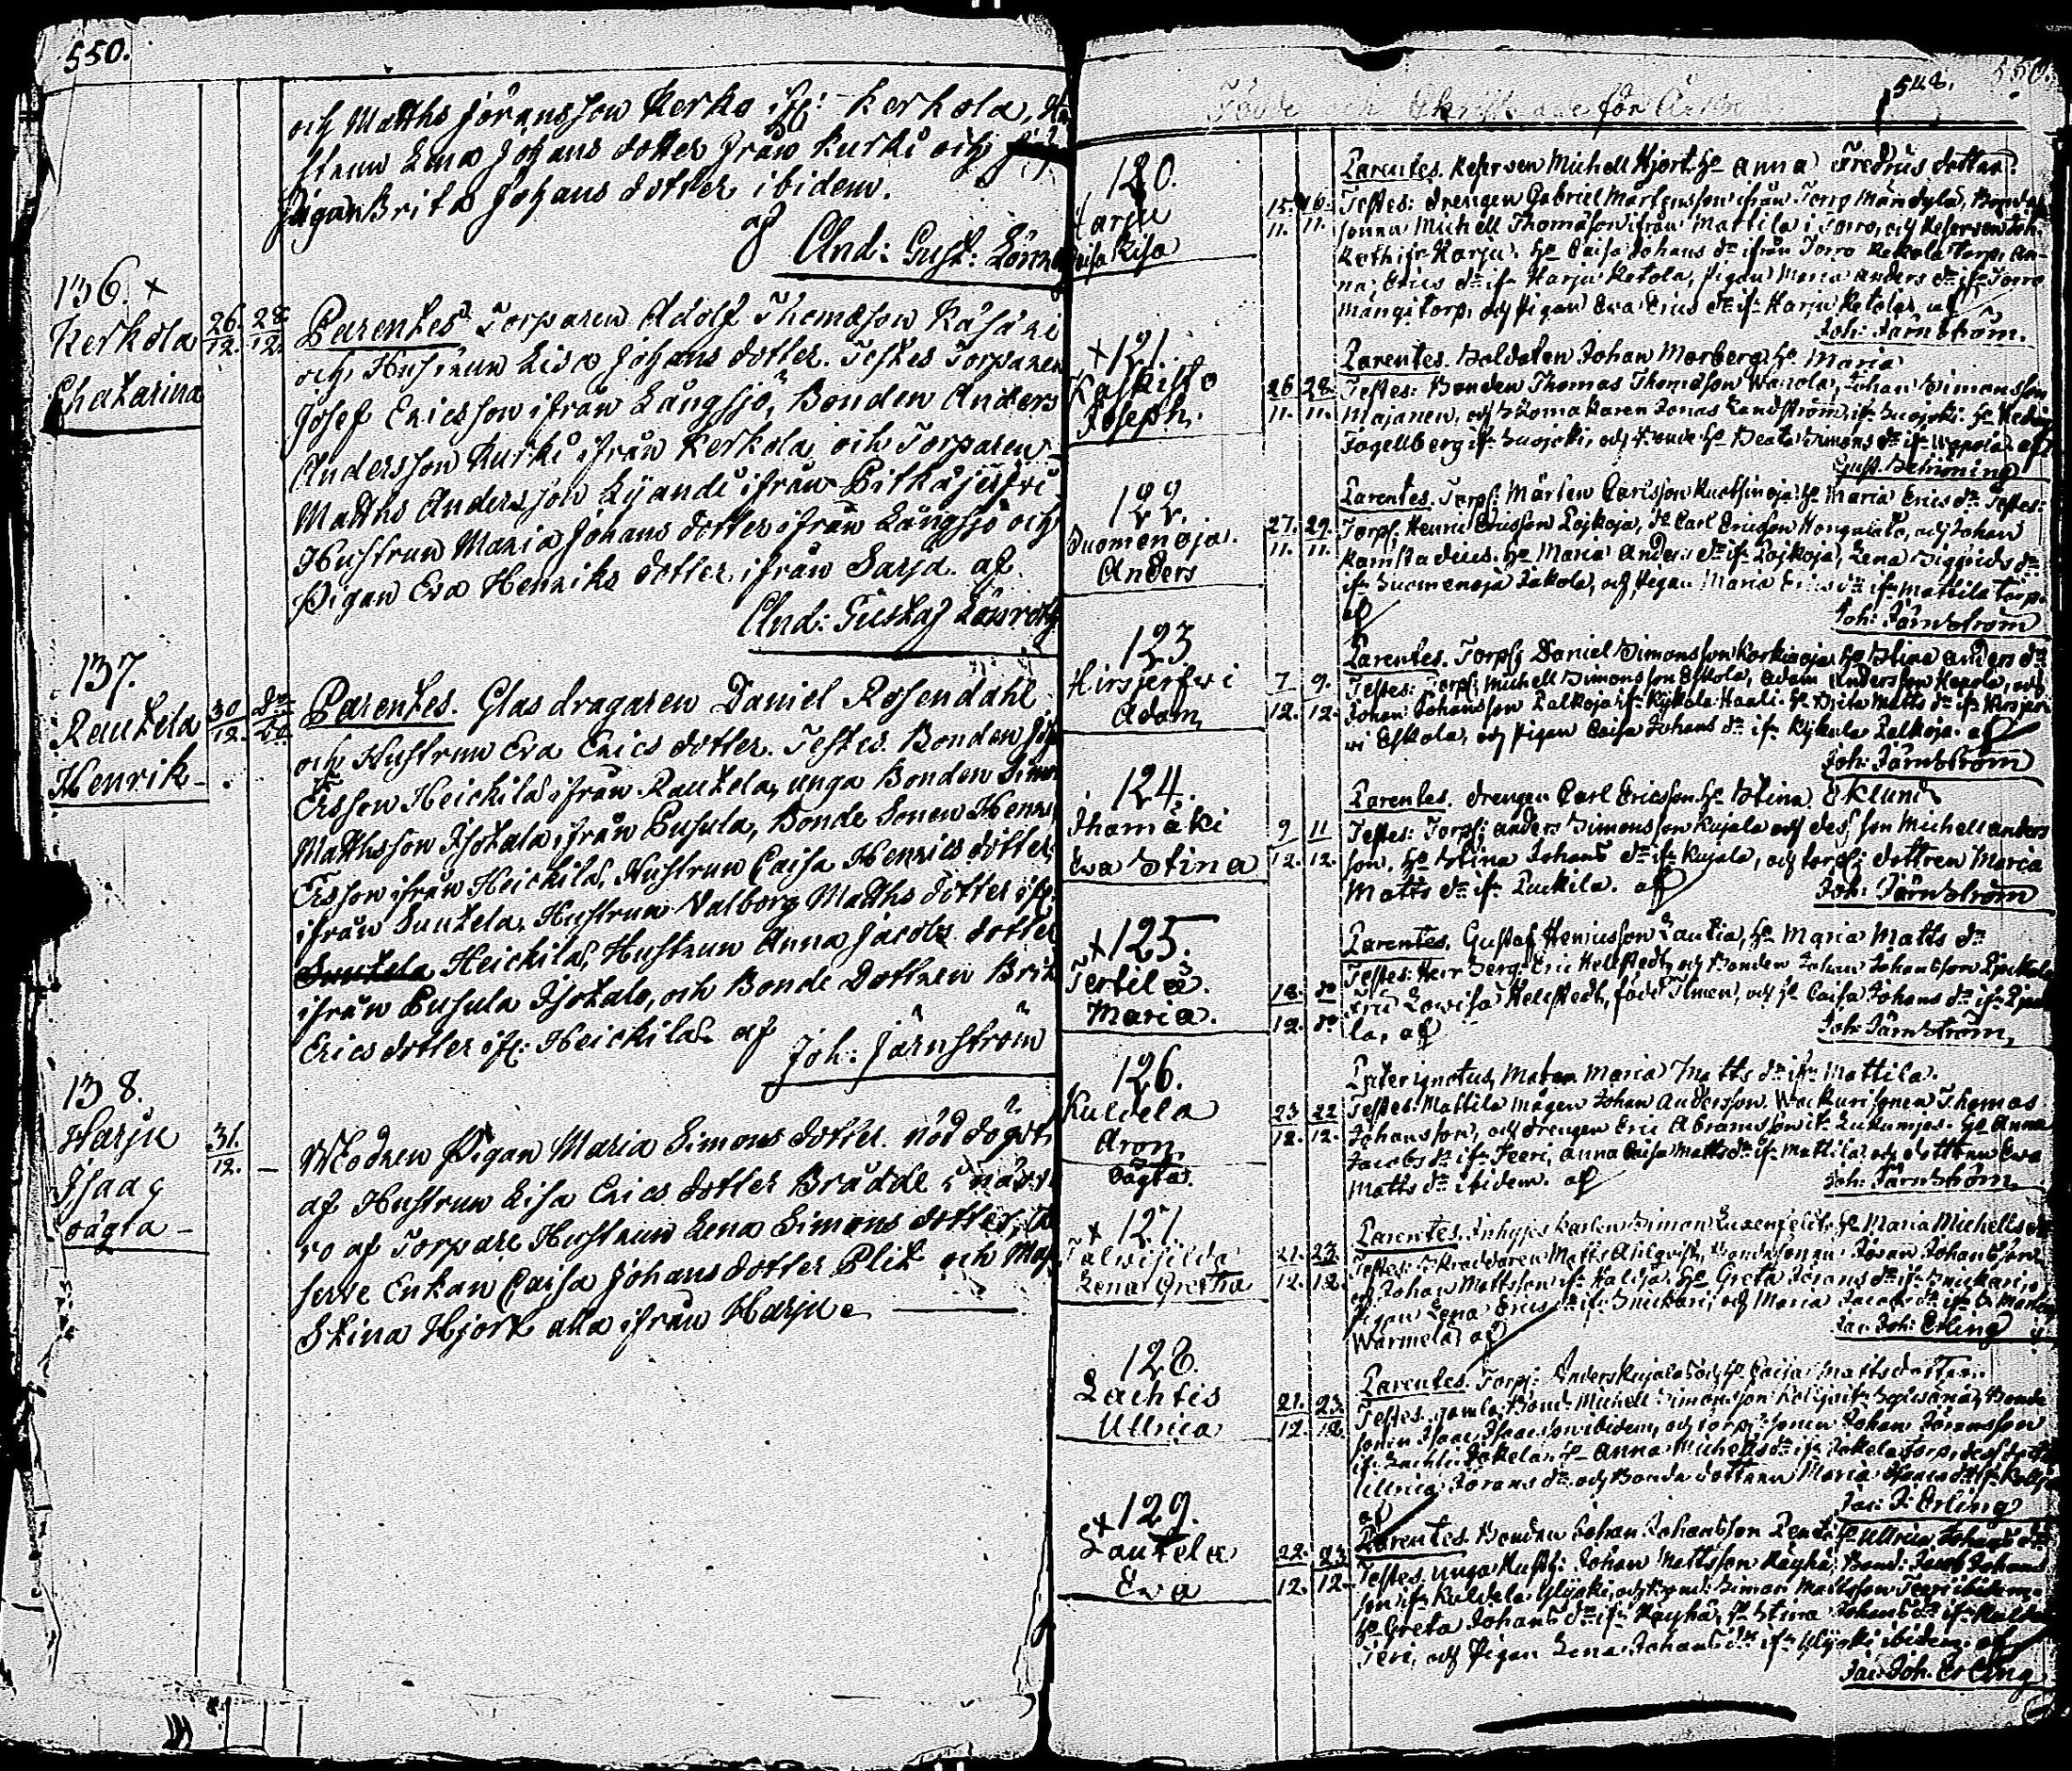 550.
och Matths Jöransson Kerko ifr: Kerkola,
strun Lena Johans dotter ifrån Kurki och
Pigan Brita Johans dotter ibidem.
af
And: Gust: Lönnro
136. x
Kerkola
Chatarina
26. 28
12. 12.
Parentes Torparen Adolf Thomasson Kasari
och Hustrun Lisa Johans dotter. Testes Torparen
Josef Ericsson ifrån Långsjö, Bonden Anders
Andersson Kurki ifrån Kerkola och Torparen
Matths Andersson Lyandi ifrån Pitkäjerfvi
Hustrun Maria Johans dotter ifrån Långsjö och
Pigan Eva Henriks dotter ifrån Sarja. af
And: Gustaf Lönroth
137.
Rautela
Henrik
30 do
12. do
Parentes. Glas dragaren Daniel Rosendahl
och Hustrun Eva Erics dotter. Testes. Bonden
Ersson Heickilä ifrån Rautela, unga Bonden Simon
Matthsson Isotalo ifrån Pusula, Bonde Sonen Henr
Ersson ifrån Heickilä, Hustrun Caisa Henrics dotter
ifrån Suutela, Hustrun Valborg Matths dotter ifr:
Heickilä, Hustrun Anna Jacobs dotter
ifrån Pusula Isotalo, och Bonde Dottren Brita
Erics dotter ifr: Heickilä. af
Joh: Järnström
138.
Harju
Isaac
oägta
31.
12.
Modren Pigan Maria Simons dotter. nöd döpt
af Hustrun Lisa Erics dotter Brådde i närva
ro af Torpare Hustrun Lena Simons dotter,
serve Enkan Caisa Johans dotter Plit och Maj
Stina Hjort alla ifrån Harju.
548. 550.
för
120.
Harju
Caisa Lisa
15. 16.
11. 11.
Parentes. Reserven Michell Hjort, Ho Anna Fredrics dotter.
Testes: drengen Gabriel Mårtensson ifrån Torp Mändylä, Bonde
sonen Michell Thomasson ifrån Mattila i Torro, och Reserven Joh:
Ho Caisa Johans dr ifrån Torro Kekola Torp, An-
na Erics dr ifr Harju Ketola, pigan Maria Anders dr ifr Torro
Mängi torp, och Pigan Eva Erics dr ifr Harju Ketola af
Joh: Järnström.
x 121.
Kaskisto
Joseph.
26 28
11. 11.
Parentes. Soldaten Johan Marberg, Ho Maria
Testes: Bonden Thomas Thomasson Wanola, Johan Simonsson
Majanen, och Skomakaren Jonas Landström, ifr Suojoki. Ho Hedvig
Fogellberg ifr Suojoki, och Ho Beata Simons dr ifr af
Gust. Behrsning
122.
Suomenoja.
Anders
27. 29.
11. 11.
Parentes. Torp: Mårten Carlsson Ho Maria Erics dr Testes:
Torp: Henric Ericsson Lojkoja, do Carl Ericsson och Johan
Ramstadius. Ho Maria Anders dr ifr Lojkoja, Lena Sigfrids dr
ifr Suomenoja Jakola, och Pigan Maria Erics dr ifr Mattila torp.
af
Joh: Järnström
123
Hirsjerfwi
Adam
7 9.
12. 12.
Parentes. Torp: Daniel Simonsson Korkiaoja Ho Stina Anders dr
Testes: Torp: Michell Simonsson Eskola, Adam Andersson Hepola, och
Johan Johansson Palkoja ifr Kykala Haali. Ho Brita Matts dr ifr Hirsjerf
wi Eskola, och Pigan Caisa Johans dr ifr Kykala Palkoja. af
Joh: Järnström
124.
Ihamäki
Ewa Stina
9 11
12. 12.
Parentes. drengen Carl Ericsson Ho Stina Eklund
Testes: Torp: Anders Simonsson Kujala och dess son Michell Anders
son, Ho Stina Johans dr ifr Kujala, och torp: dottren Maria
Matts dr ifr Puckila. af
Joh: Järnström
x 125.
Tertilä.
Maria.
18. do
12. do
Parentes. Gustaf Henricsson Lautia, Ho Maria Matts dr
Testes: Herr Serg: Eric Hellstedt, och Bonden Johan Johansson
Fru Lowisa Hellstedt, född Ilmen, och Ho Caisa Johans dr ifr
la, af
Joh: Järnström,
126.
Kuldela
Aron
oägta.
23 22
12. 12.
Pater ignotus, Mater Maria Matts dr ifr Mattila.
Testes: Mattila mågen Johan Andersson, sonen Thomas
Johansson, och drengen Eric Abramsson Ho Anna
Jacobs dr ifr Teeri, Anna Caisa Matts dr ifr Mattila och dottren Ewa
Matts dr ibidem. af
Joh: Järnström.
x 127.
Talwisilda
Lena Gretha
21. 23.
12. 12.
Parentes. Inhyses Karlen Simon Ho Maria Michells dr
Testes: Skräddaren Matts Ahlqvist, Bondesonen Jöran Johansson
och Johan Mattsson ifr Haldja, Ho Greta Jörans dr ifr Snickari,
Pigan Lena Erics dr ifr Snickari, och Maria Jacobs dr ifr
Wärmelä. af
Jac: Joh: Erling
128.
Lachtis
Ullrica
21. 23.
12. 12.
Parentes. Torp: Anders Kujala och Ho Caisa Mattsdotter.
Testes. gamla Bond: Michell Simonsson Bonde
sonen Isaac Isaacsson ibidem, och torp: sonen Johan Jöransson
ifr Lachtis Jokela. Ho Anna Michells dr ifr Jokela torp, dess dotter
Ullrica Jörans dr och Bonde dottren Maria
af
Jac: J: Erling
x 129.
Lautela
Ewa
22. 23
12. 12.
Parentes. Bonden Johan Johansson Ho Ullrica Johans dr
Testes. unga Johan Mattsson Räyhä, Bond: Jacob Johans
son ifr Kuldela Ulyoki, och Bond: Simon Mattsson Teeri ibidem.
Ho Greta Johans dr ifr Räyhä, Ho Stina Johans dr ifr Kuldela
Teri, och Pigan Lena Johans dr ifr Ulyoki ibidem. af
Jac: Joh: Erling